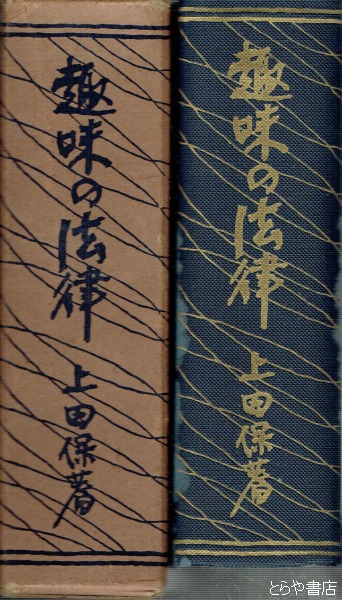 趣味の法律
上田保著
趣味の法律
上田保著
とらや書店